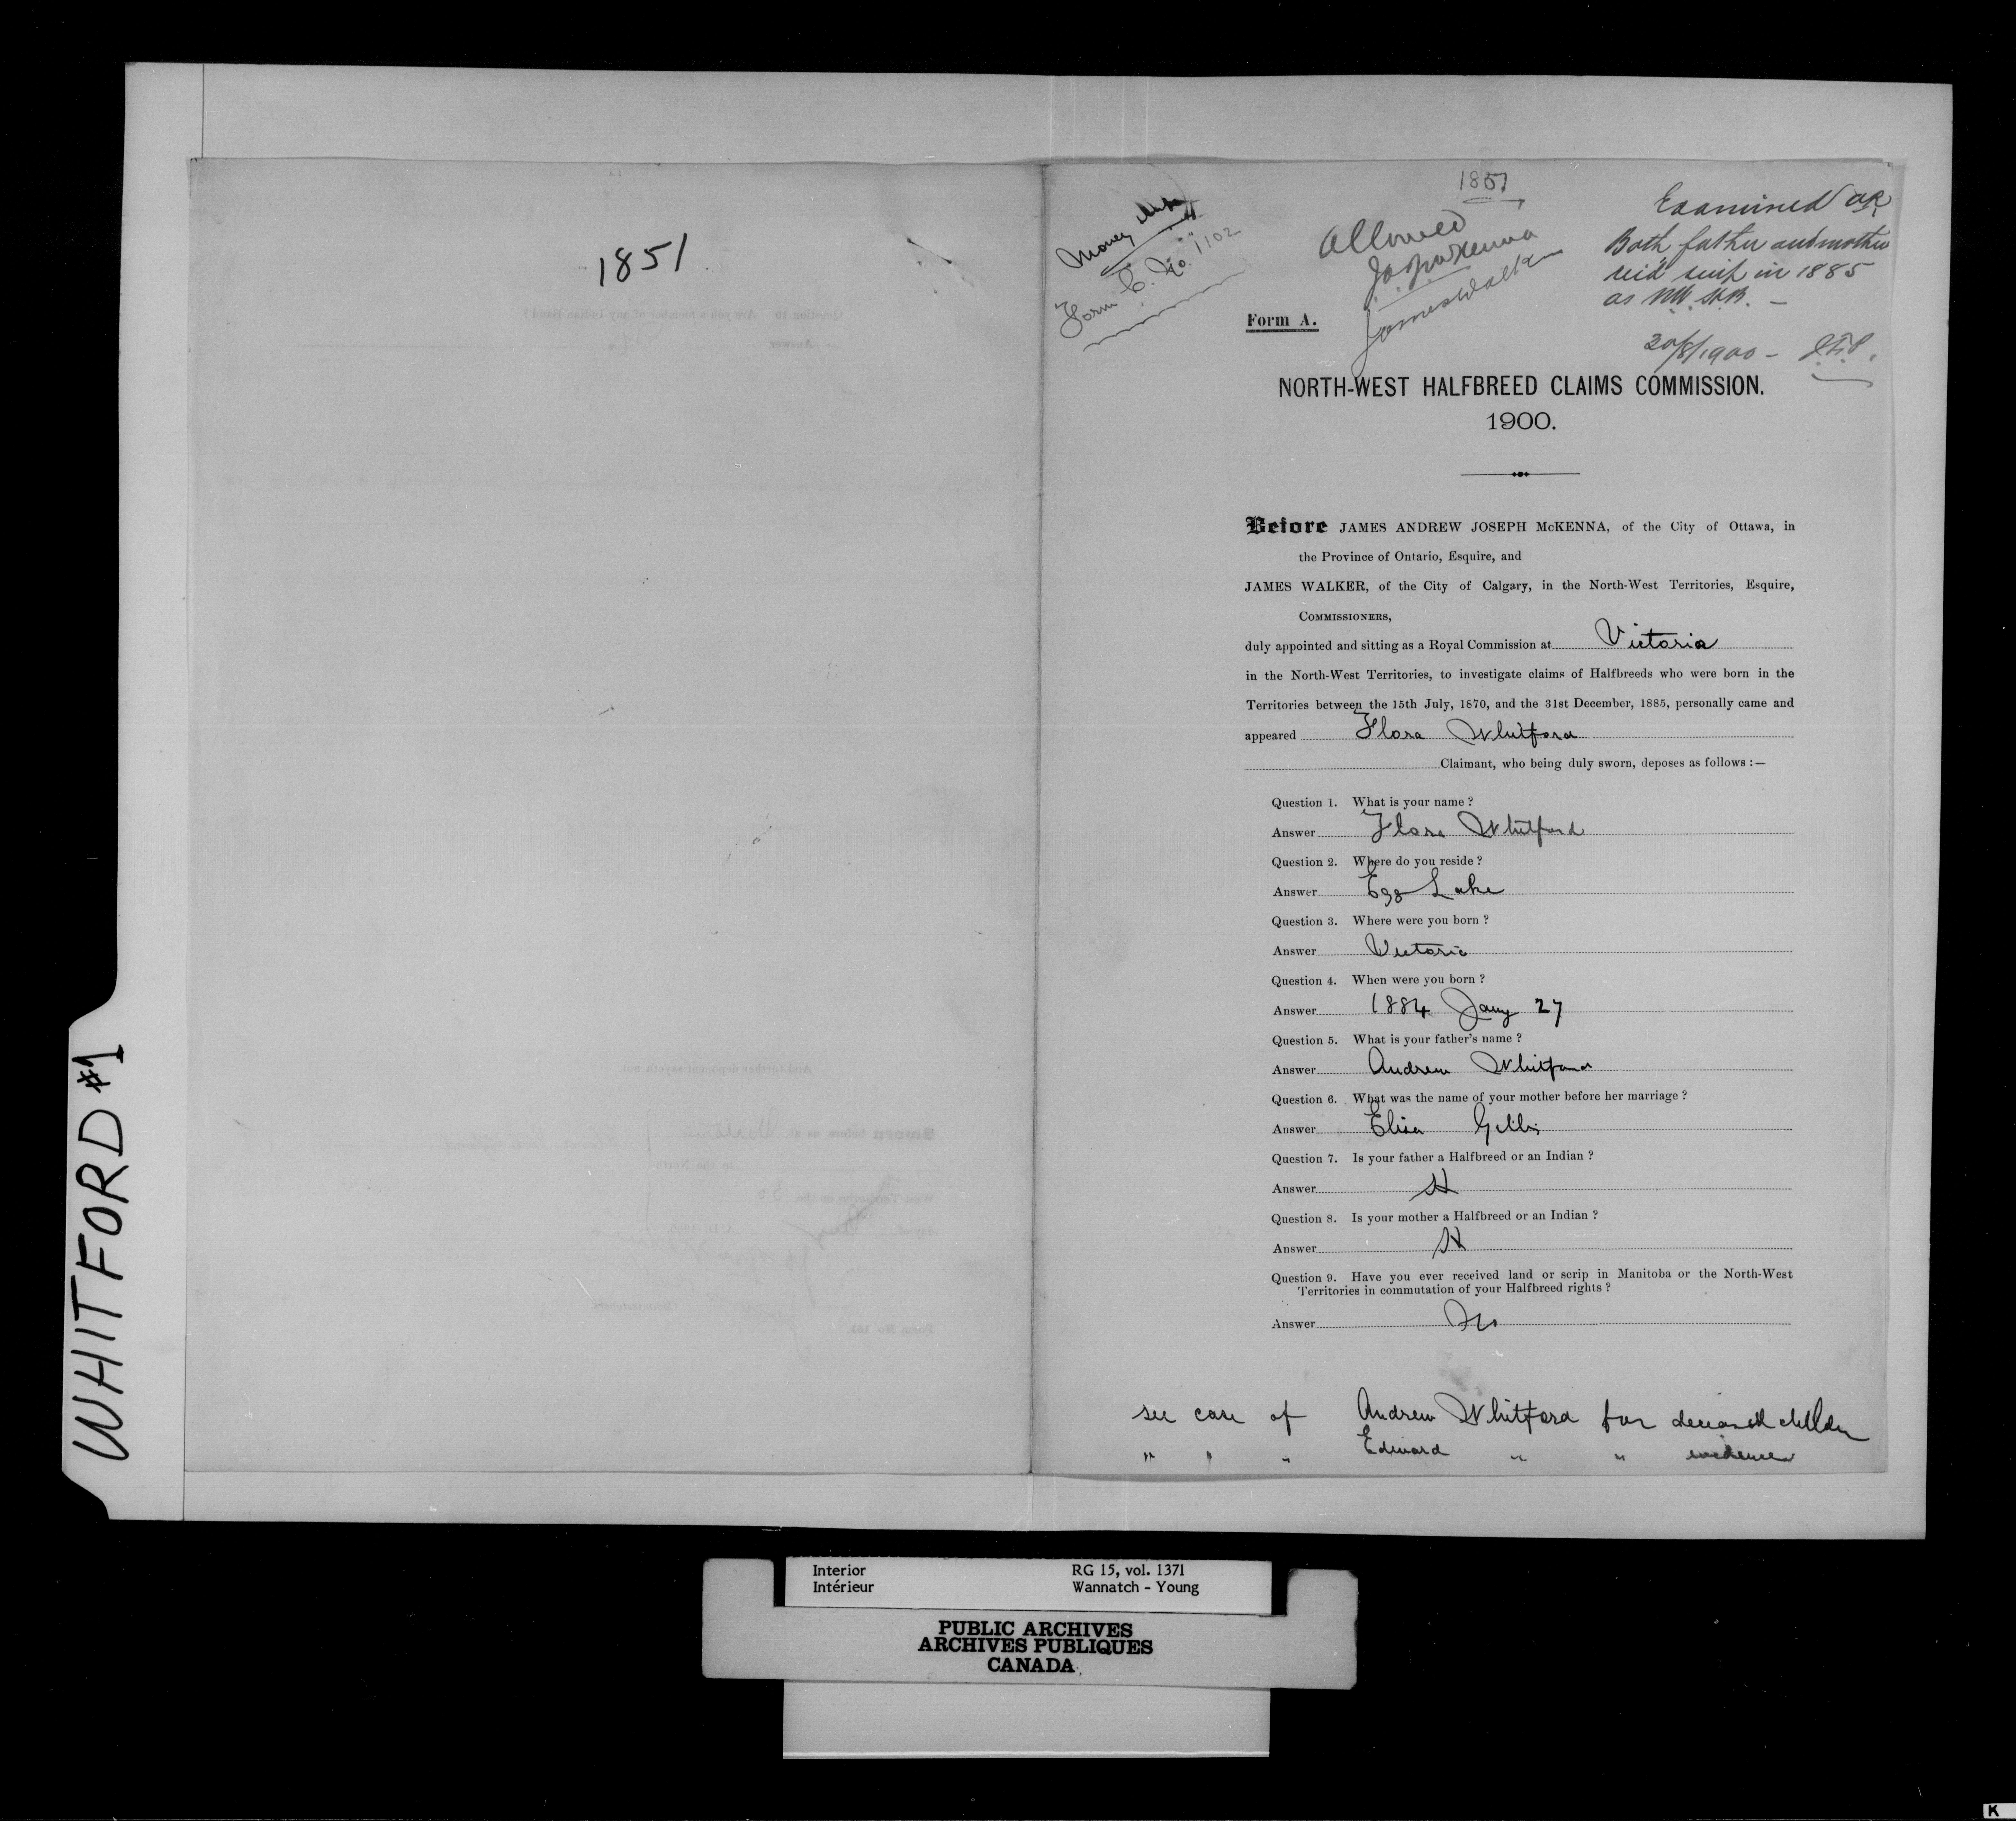 WHITFORD #1
1851
1851
Money
Form C. No. 1102
Allowed
J.A.J. McKenna
James Walker
Examined OK
Both father and mother
rec'd scrip in 1885
as NW. H.B. —
20/8/1900 —
Form A.
NORTH-WEST HALFBREED CLAIMS COMMISSION.
1900.
Before JAMES ANDREW JOSEPH McKENNA, of the City of Ottawa, in
the Province of Ontario, Esquire, and
JAMES WALKER, of the City of Calgary, in the North-West Territories, Esquire,
COMMISSIONERS,
duly appointed and sitting as a Royal Commission at Victoria
in the North-West Territories, to investigate claims of Halfbreeds who were born in the
Territories between the 15th July, 1870, and the 31st December, 1885, personally came and
appeared Flora Whitford
Claimant, who being duly sworn, deposes as follows :—
Question 1. What is your name ?
Answer Flora Whitford
Question 2. Where do you reside ?
Answer Egg Lake
Question 3. Where were you born ?
Answer Victoria
Question 4. When were you born ?
Answer 1884 Jany 27
Question 5. What is your father's name ?
Answer Andrew Whitford
Question 6. What was the name of your mother before her marriage ?
Answer Elisa
Question 7. Is your father a Halfbreed or an Indian ?
Answer H
Question 8. Is your mother a Halfbreed or an Indian ?
Answer H
Question 9. Have you ever received land or scrip in Manitoba or the North-West
Territories in commutation of your Halfbreed rights ?
Answer No
see case of Andrew Whitford for deceased children
" " " Edward " " evidence
Interior RG 15, vol. 1371
Intérieur Wannatch - Young
PUBLIC ARCHIVES
ARCHIVES PUBLIQUES
CANADA
K